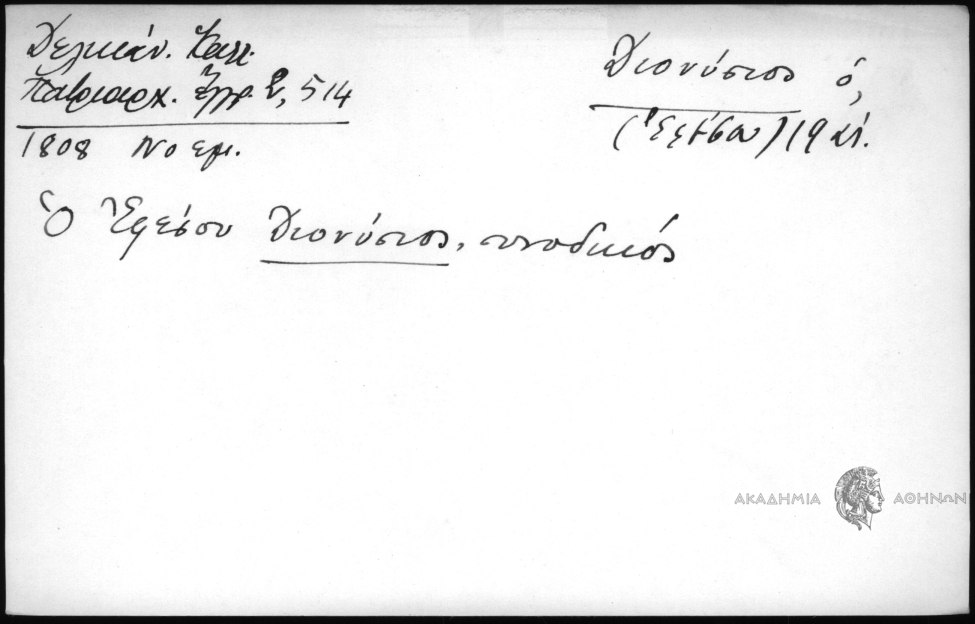 Δελικάν. Καλλ.
Πατριαρχ. Ἔγγρ. Γ, 514
1808 Νοεμ.
Διονύσιος ὁ,
(Ἐφέσου) 19 αἰ.
Ὁ Ἐφέσου Διονύσιος, συνοδικός
ΑΚΑΔΗΜΙΑ ΑΘΗΝΩΝ